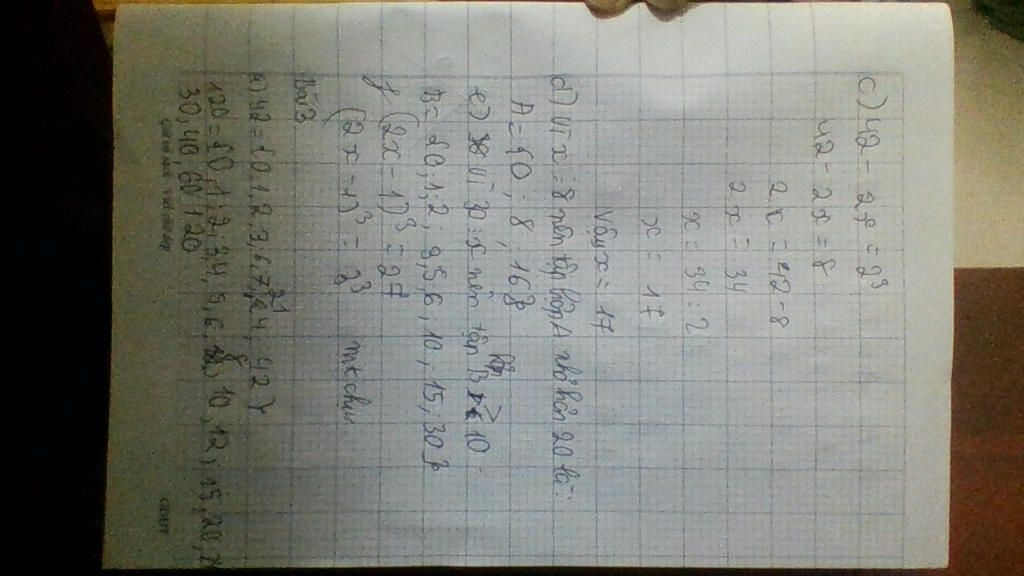 c) 42 - 2x = 2³
42 - 2x = 8
2.x = 42 - 8
2.x = 34
x = 34 : 2
x = 17
Vậy x = 17
d) Vì x ⋮ 8 nên tập hợp A nhỏ hơn 20 là:
A = {0 ; 8 ; 16}
e) Vì 30 ⋮ x nên tập hợp B 10
B = {0; 1; 2; 3, 5, 6; 10; 15; 30}
f (2x - 1)³ = 27
(2x - 1)³ = 3³
Bài 3
a) 42 = {0, 1, 2, 3, 6, 7, 21, 42}
120 = {0, 1, 2, 3, 4, 5, 6, 8, 10, 12, 15, 20,
30, 40, 60, 120